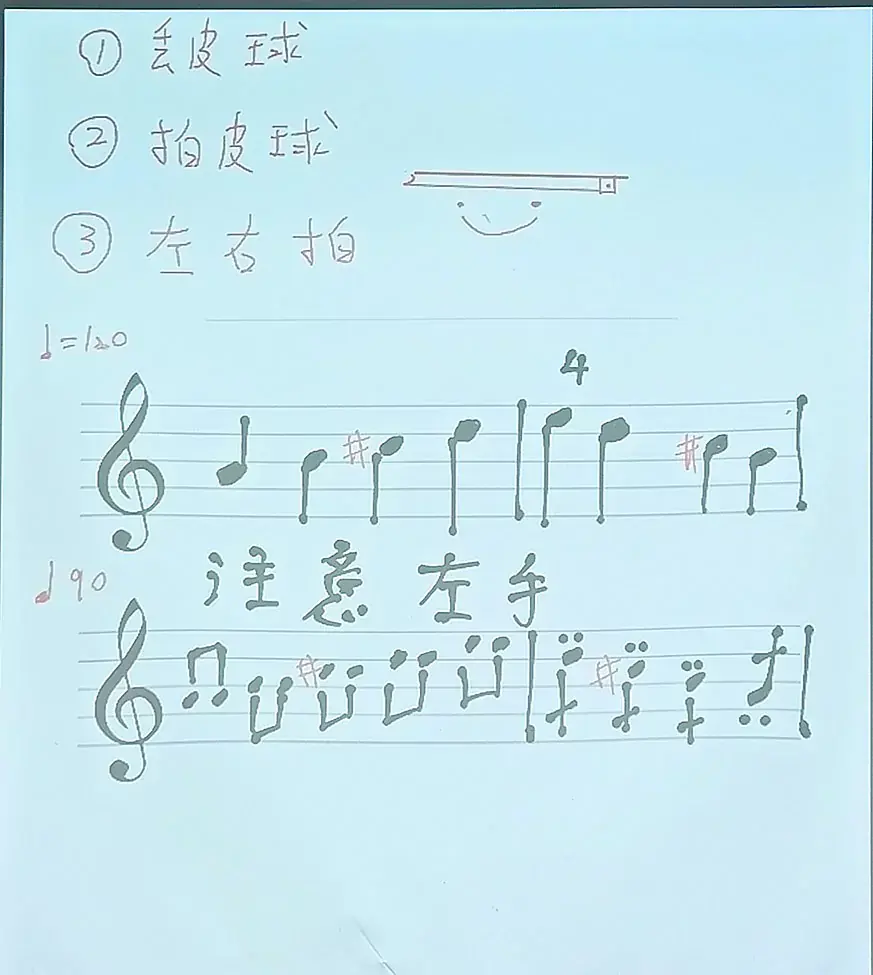 ① 丢皮球
② 拍皮球
③ 左右拍
♩=120
4
注意左手
♩90